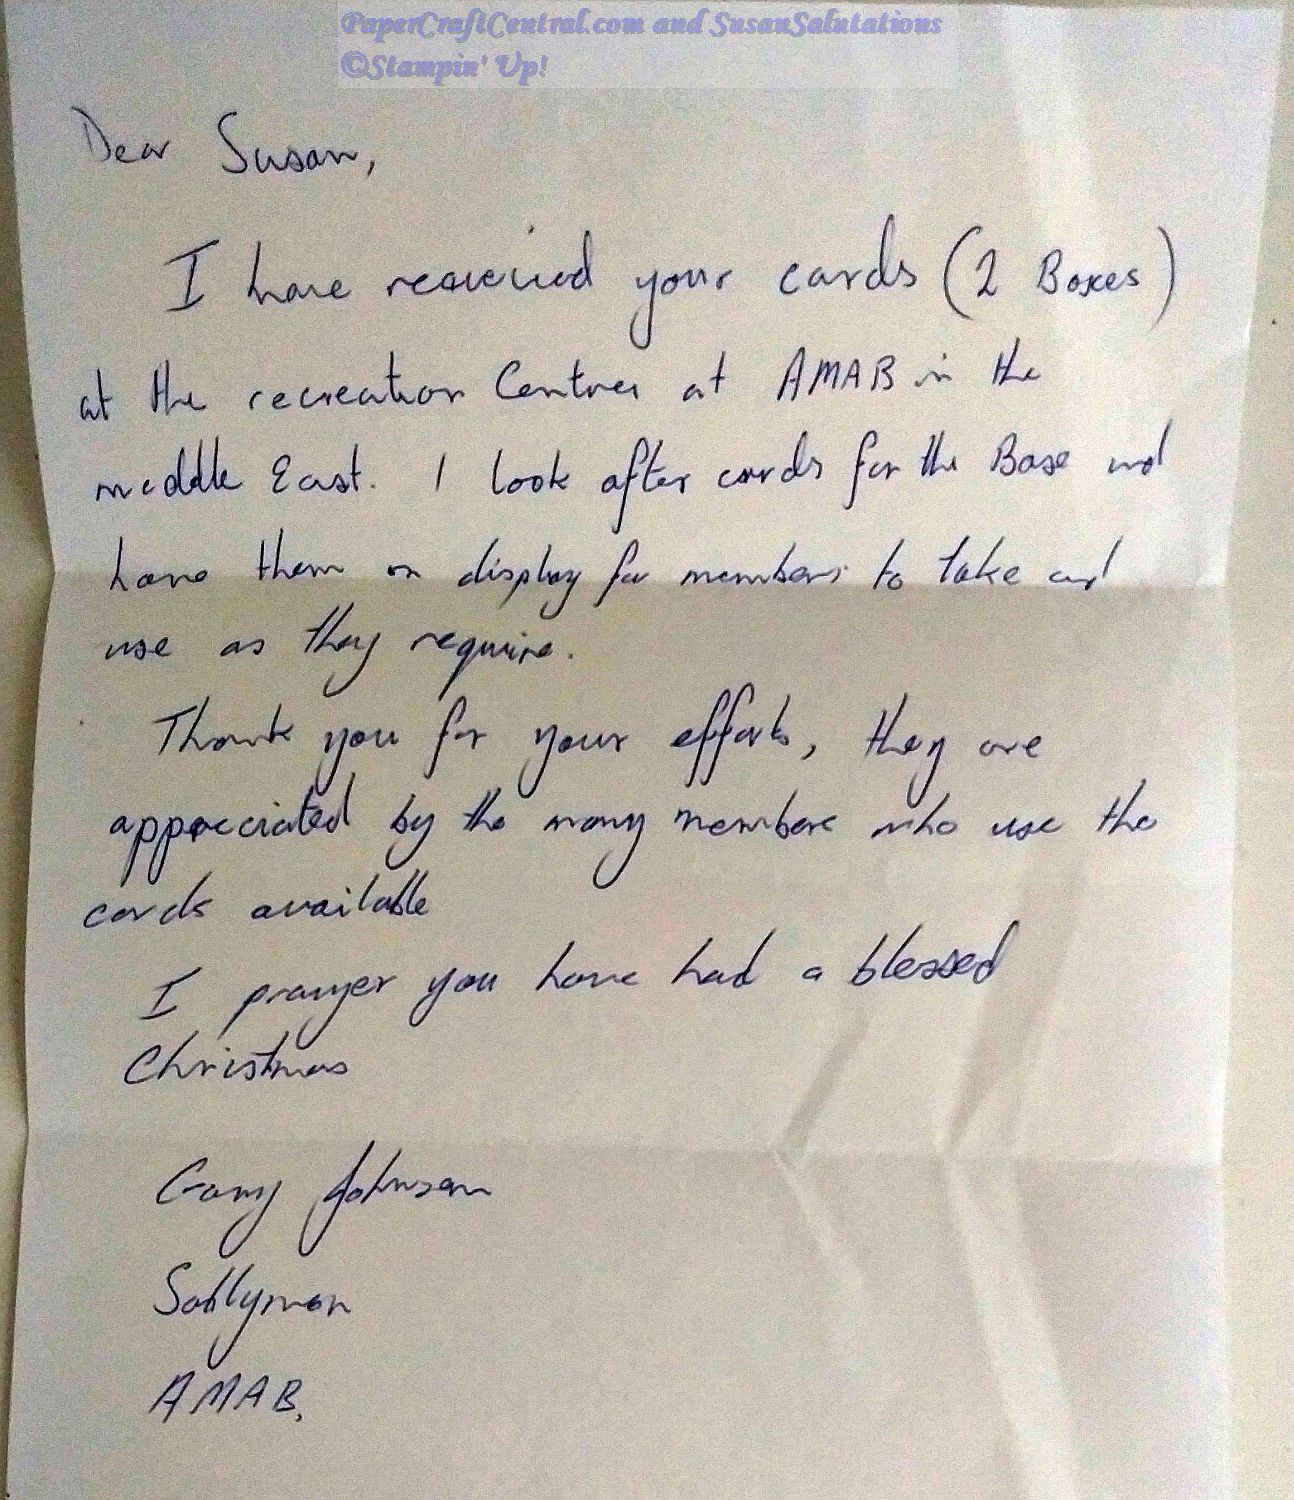 PaperCraftCentral.com and SusanSalutations
©Stampin' Up!
Dear Susan,
I have received your cards (2 Boxes)
at the recreation Centres at AMAB in the
middle East. I look after cards for the Base and
have them on display for members to take and
use as they require.
Thank you for your efforts, they are
appreciated by the many members who use the
cards available
I prayer you have had a blessed
Christmas
Johnson
AMAB.